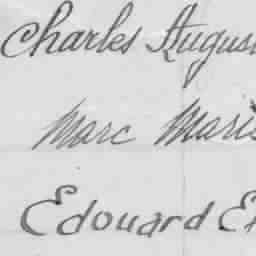 Charles August
Marc Maris
Edouard E